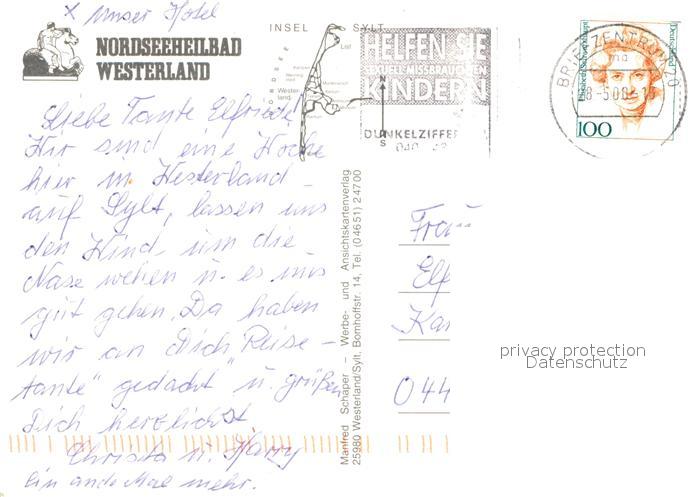 x unser Hotel
NORDSEEHEILBAD
WESTERLAND
INSEL SYLT
NORDSEE
List
Wester-
land
N
S
HELFEN SIE
SEXUELL MISSBRAUCHTEN
KINDERN
DUNKELZIFFER
040
BRIEFZENTRUM 20
ma
Deutschland
100
Liebe Tante Elfriede!
Wir sind eine Woche
hier in Westerland
auf Sylt, lassen uns
den Wind um die
Nase wehen u. es uns
gut gehen. Da haben
wir an dich „Reise-
tante" gedacht u. grüßen
Dich herzlichst
Christa u. Harry
Ein andr Mal mehr.
Manfred Schaper – Werbe- und Ansichtskartenverlag
25980 Westerland/Sylt, Bomhoffstr. 14, Tel. (04651) 24700
Frau
Elf
Ka
044
privacy protection
Datenschutz